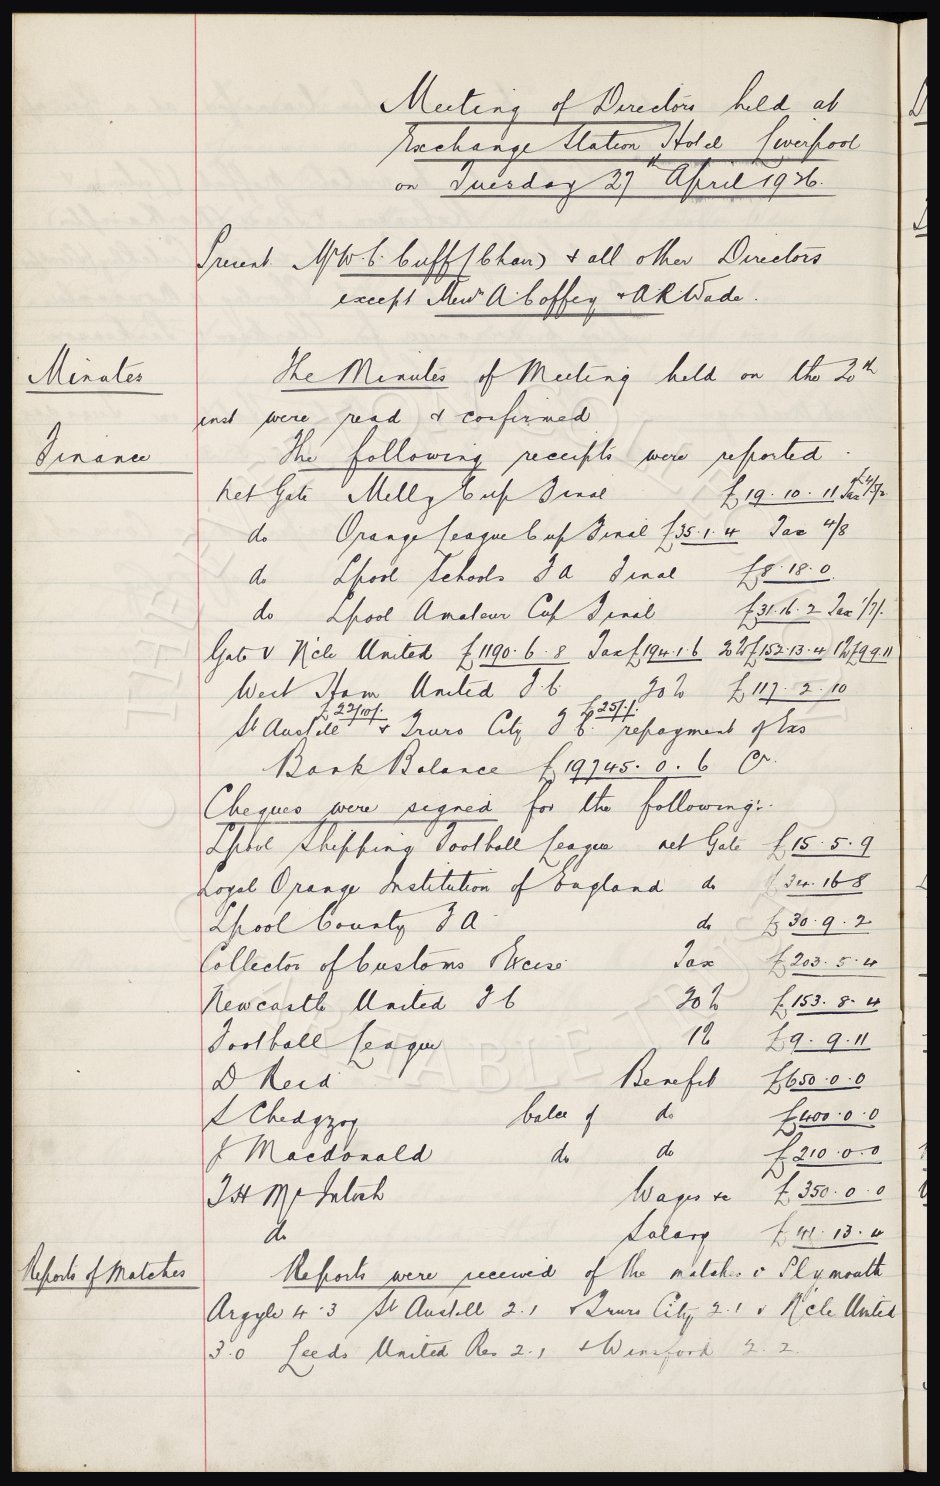 Meeting of Directors held at
Exchange Station Hotel Liverpool
on Tuesday 27th April 1926.
Present Mr W. C. Cuff (Chair) & all other Directors
except Messrs A. Coffey & A R Wade.
Minutes
The Minutes of Meeting held on the 20th
inst were read & confirmed
Finance
The following receipts were reported
Net Gate Melly Cup Final £19.10.11 Tax
do Orange League Cup Final £35.1.4 Tax 4/8
do Lpool Schools F A Final £8.18.0
do Lpool Amateur Cup Final £31.16.2 Tax 1/7/.
Gate v N'cle United £1190.6.8 Tax £194.1.6 20% £152.13.4 1% £9.9.11
West Ham United F.C. 20% £117.2.10
£22/10/. £25/./.
St Austell & Truro City F.C. repayment of Exs
Bank Balance £19745.0.6 Cr.
Cheques were signed for the following:-
Lpool Shipping Football League net Gate £15.5.9
Loyal Orange Institution of England do £34.16.8
Lpool County F A do £30.9.2
Collector of Customs & Excise Tax £203.5.4
Newcastle United F C 20% £153.8.4
Football League 1% £9.9.11
D Reid Benefit £650.0.0
S Chedgzoy balce of do £400.0.0
J Macdonald do do £210.0.0
T H McIntosh Wages &c £350.0.0
do Salary £41.13.4
Reports of Matches
Reports were received of the matches v Plymouth
Argyle 4.3 St Austell 2.1 & Truro City 2.1 v N'cle United
3.0 Leeds United Res 2.1 & Winsford 2.2.